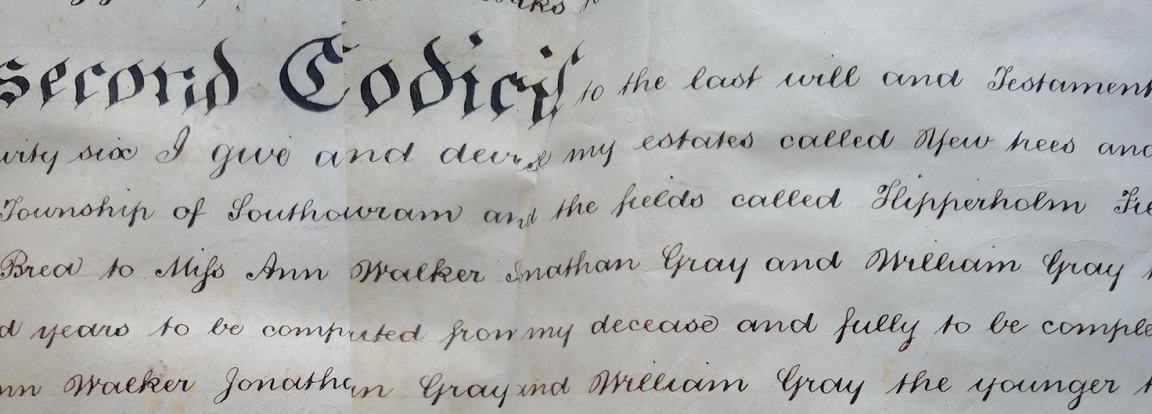 second Codicil to the last will and Testament
six I give and devise my estates called Yew trees and
Township of Southowram and the fields called Hipperholm
Bred to Miss Ann Walker Jonathan Gray and William Gray
d years to be computed from my decease and fully to be comple
nn Walker Jonathan Gray and William Gray the younger t